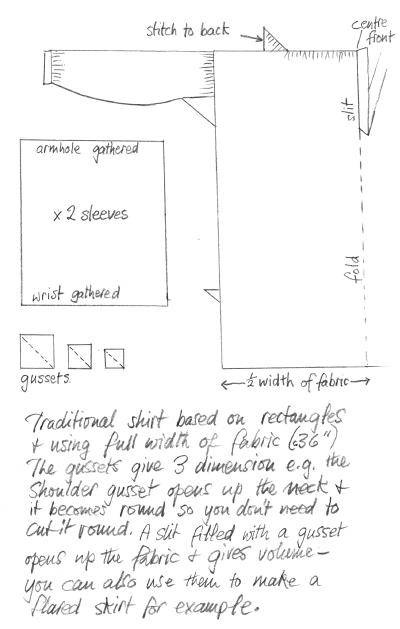 stitch to back
centre
front
slit
armhole gathered
x 2 sleeves
wrist gathered
fold
gussets
½ width of fabric
Traditional shirt based on rectangles
+ using full width of fabric (≤36")
The gussets give 3 dimension e.g. the
shoulder gusset opens up the neck +
it becomes round so you don't need to
cut it round. A slit filled with a gusset
opens up the fabric + gives volume –
you can also use them to make a
flared skirt for example.